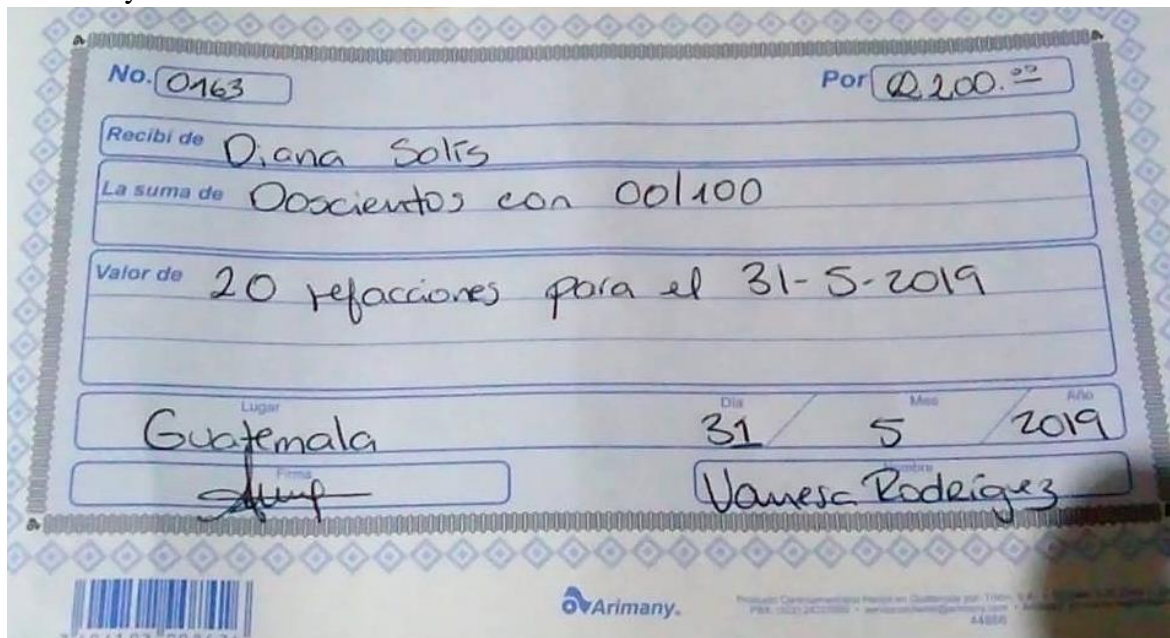 No. 0163 Por Q.200.00
Recibí de Diana Solís
La suma de Doscientos con 00/100
Valor de 20 refacciones para el 31-5-2019
Lugar Día Mes Año
Guatemala 31 5 2019
Firma Nombre
Vanesa Rodriguez
Arimany.
44866